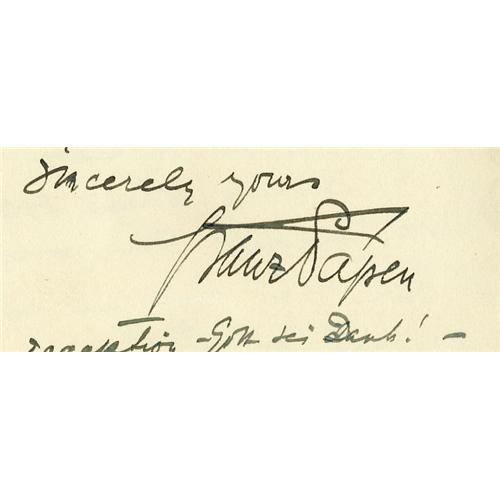 Sincerely yours
Franz Papen
reception – Gott sei Dank! –